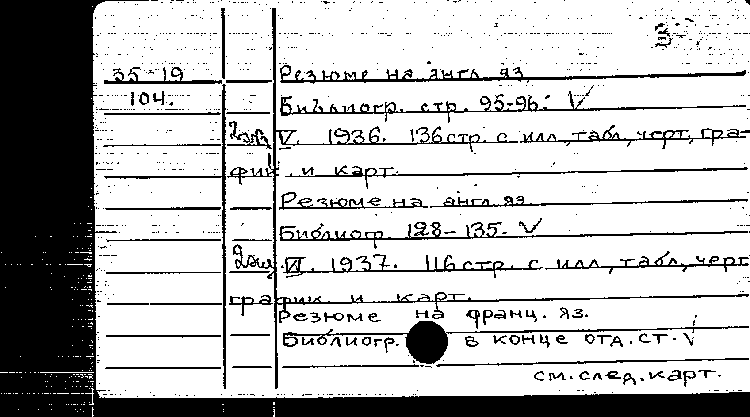 3-
35-19 Резюме на англ яз.
104. Библиогр. стр. 95-96. V
2экз V. 1936. 136 стр. с илл, табл, черт, гра-
фик. и карт.
Резюме на англ яз.
Библиогр. 128-135. V
2экз. VI. 1937. 116 стр. с илл, табл, черт
график. и карт.
Резюме на франц. яз.
Библиогр. в конце отд. ст. V
см. след. карт.